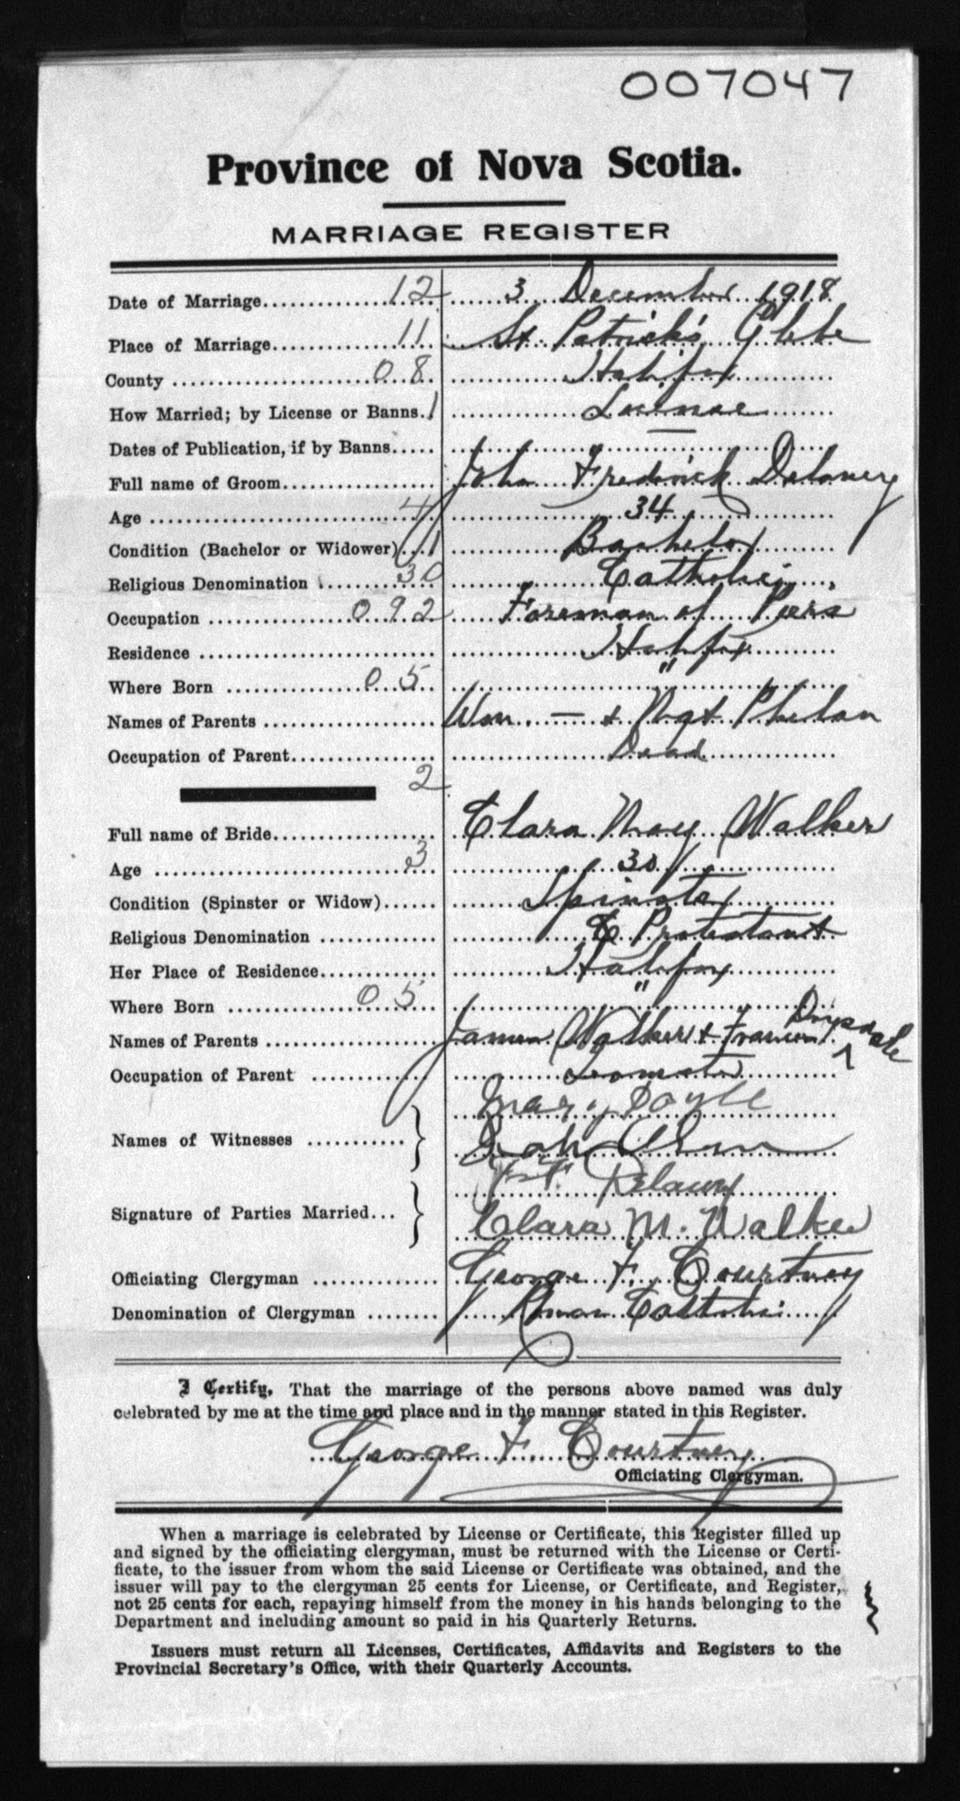 007047
Province of Nova Scotia.
MARRIAGE REGISTER
Date of Marriage 12 3 December 1918
Place of Marriage 11 St Patrick's Glebe
County 08 Halifax
How Married; by License or Banns. 1 License
Dates of Publication, if by Banns
Full name of Groom John Frederick Delaney
Age 4 34
Condition (Bachelor or Widower) 1 Bachelor
Religious Denomination 30 Catholic
Occupation 092 Foreman of Piers
Residence Halifax
Where Born 05 "
Names of Parents Wm. — + Mgt Phelan
Occupation of Parent Dead
2
Full name of Bride Clara May Walker
Age 3 30
Condition (Spinster or Widow) Spinster
Religious Denomination Protestant
Her Place of Residence Halifax
Where Born 05 "
Names of Parents James Walker + Drysdale
Occupation of Parent
Names of Witnesses Mary Doyle
Signature of Parties Married... J. F. Delaney
Clara M. Walker
Officiating Clergyman George F. Courtney
Denomination of Clergyman Roman Catholic
I Certify, That the marriage of the persons above named was duly
celebrated by me at the time and place and in the manner stated in this Register.
George F. Courtney
Officiating Clergyman.
When a marriage is celebrated by License or Certificate, this Register filled up
and signed by the officiating clergyman, must be returned with the License or Certi-
ficate, to the issuer from whom the said License or Certificate was obtained, and the
issuer will pay to the clergyman 25 cents for License, or Certificate, and Register,
not 25 cents for each, repaying himself from the money in his hands belonging to the
Department and including amount so paid in his Quarterly Returns.
Issuers must return all Licenses, Certificates, Affidavits and Registers to the
Provincial Secretary's Office, with their Quarterly Accounts.